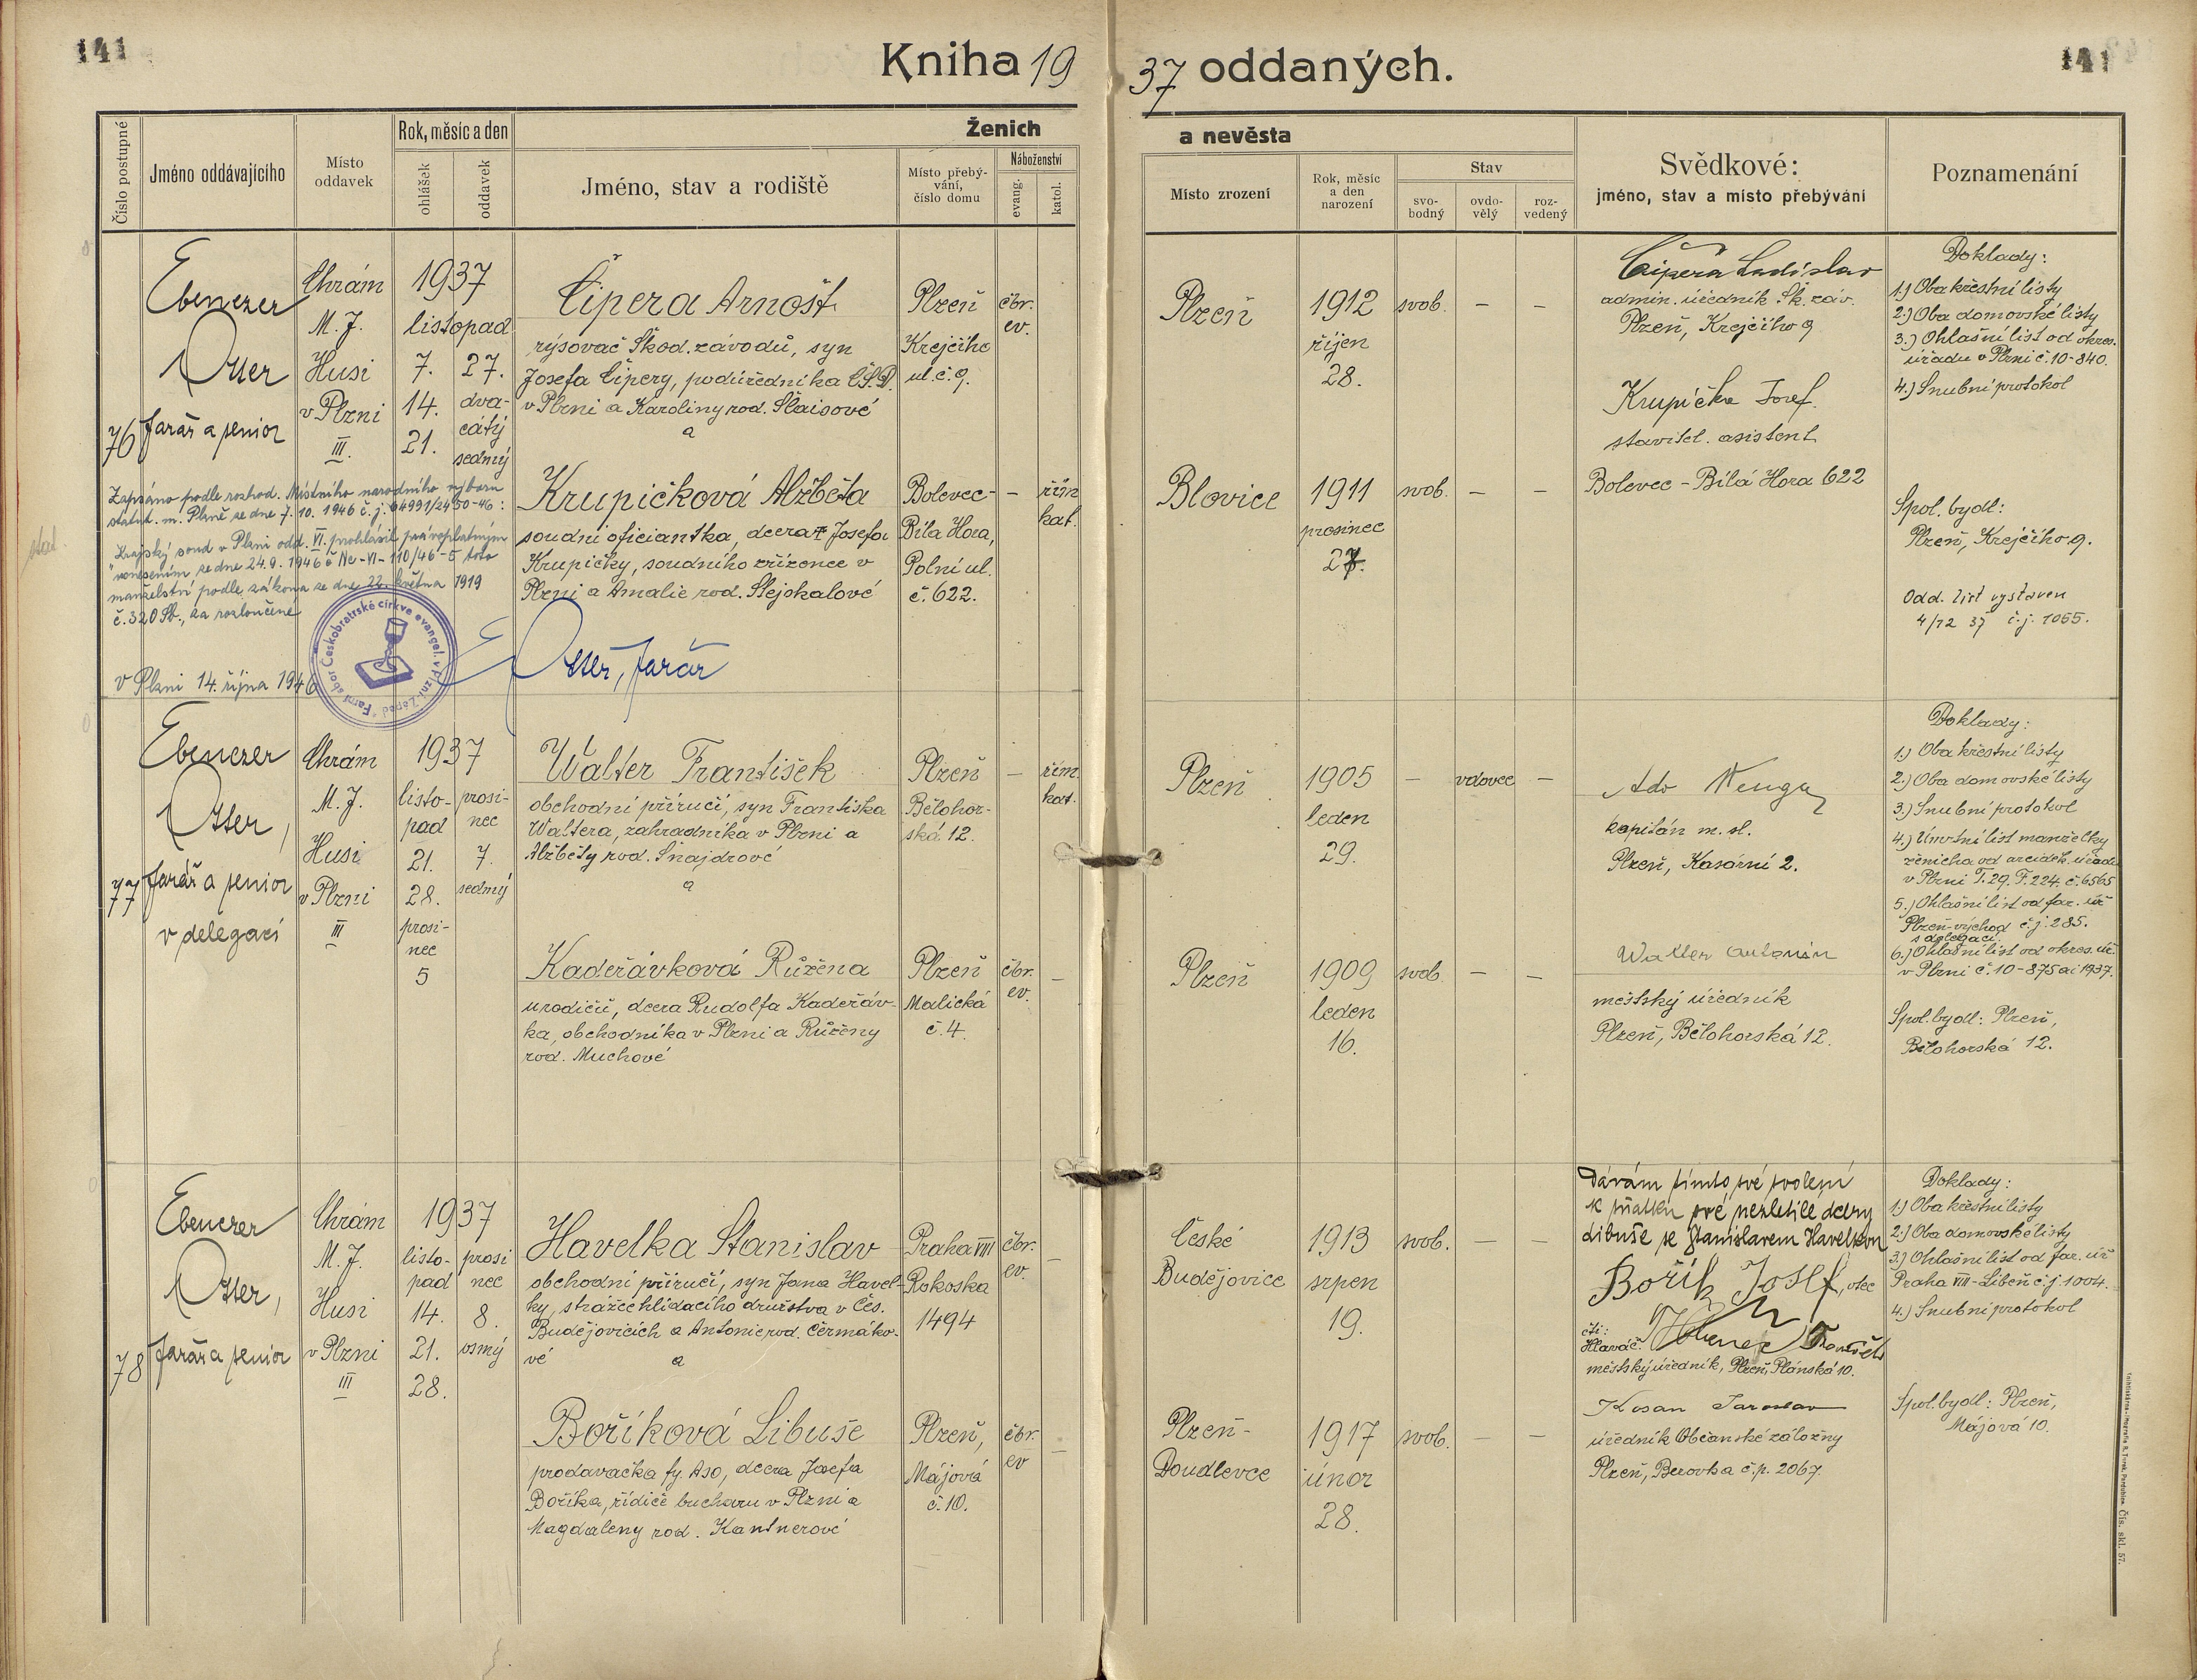 141
Kniha 19 37 oddaných.
141
Číslo postupné
Jméno oddávajícího
Místo oddavek
Rok, měsíc a den
ohlášek
oddavek
Ženich
Jméno, stav a rodiště
Místo přebývání, číslo domu
Náboženství
evang.
katol.
a nevěsta
Místo zrození
Rok, měsíc a den narození
Stav
svobodný
ovdovělý
rozvedený
Svědkové:
jméno, stav a místo přebývání
Poznamenání
76
Ebenezer
Otter
farář a senior
Chrám
M. J.
Husi
v Plzni
III.
1937
listopad
7.
14.
21.
27.
dva-
cátý
sedmý
Čipera Arnošt
rýsovač Škod. závodů, syn
Josefa Čipery, podúředníka ČSD.
v Plzni a Karoliny rod. Šlaisové
a
Plzeň
Krejčího
ul. č. 9.
čbr.
ev.
Plzeň
1912
říjen
28.
svob.
–
–
Čipera Ladislav
admin. úředník Šk. záv.
Plzeň, Krejčího 9
Krupička Josef.
stavitel. asistent
Bolevec - Bílá Hora 622
Doklady:
1.) Oba křestní listy
2.) Oba domovské listy
3.) Ohlašní list od okres.
úřadu v Plzni č. 10-840.
4.) Snubní protokol
Krupičková Alžběta
soudní oficiantka, dcera Josefa
Krupičky, soudního zřízence v
Plzni a Amalie rod. Slejskalové
Bolevec-
Bílá Hora,
Polní ul.
č. 622.
–
řím.
kat.
Blovice
1911
prosinec
27.
svob.
–
–
Spol. bydl:
Plzeň, Krejčího 9.
Odd. list vystaven
4/12 37 č. j. 1055.
Zapsáno podle rozhod. Místního národního výboru
statut. m. Plzně ze dne 7. 10. 1946 č. j. 64991/2450-46:
"Krajský soud v Plzni odd. VI. prohlásil právoplatným
usnesením ze dne 24.9. 1946 č Nc-VI-110/46-5 toto
manželství podle zákona ze dne 22. května 1919
č. 320 Sb., za rozloučené
v Plzni 14. října 1946
Farní sbor Českobratrské církve evangel. v Plzni-Západ
E Otter, farář
77
Ebenezer
Otter,
farář a senior
v delegaci
Chrám
M. J.
Husi
v Plzni
III
1937
listo-
pad
21.
28.
prosi-
nec
5
prosi-
nec
7.
sedmý
Walter František
obchodní příručí, syn Františka
Waltera, zahradníka v Plzni a
Alžběty rod. Šnajdrové
a
Plzeň
Bělohor-
ská 12.
–
řím.
kat.
Plzeň
1905
leden
29.
–
vdovec
–
kapitán m. sl.
Plzeň, Kasární 2.
Walter Antonín
městský úředník
Plzeň, Bělohorská 12.
Doklady:
1.) Oba křestní listy
2.) Oba domovské listy
3.) Snubní protokol
4.) Úmrtní list manželky
ženicha od arciděk. úřadu
v Plzni T. 29. F. 224. č. 6565
5.) Ohlašní list od far. úř
Plzeň-východ č. j. 285.
s delegací
6.) Ohlašní list od okres. úř.
v Plzni č. 10-875 ai 1937.
Spol. bydl: Plzeň,
Bělohorská 12.
Kadeřávková Růžena
u rodičů, dcera Rudolfa Kadeřáv-
ka, obchodníka v Plzni a Růženy
rod. Muchové
Plzeň
Malická
č. 4.
čbr.
ev.
–
Plzeň
1909
leden
16.
svob
–
–
78
Ebenezer
Otter,
farář a senior
Chrám
M. J.
Husi
v Plzni
III
1937
listo-
pad
14.
21.
28.
prosi
nec
8.
osmý
Havelka Stanislav
obchodní příručí, syn Jana Havel-
ky, strážce hlídacího družstva v Čes.
Budějovicích a Antonie rod. Čermáko-
vé a
Praha VIII
Rokoska
1494
čbr.
ev.
–
České
Budějovice
1913
srpen
19.
svob.
–
–
Dávám tímto své svolení
k sňatku své nezletilé dcery
Libuše se Stanislavem Havelkou
Bořík Josef, otec
čti:
Hlaváč
František
městský úředník, Plzeň, Plánská 10.
Kosan Jaroslav
úředník Občanské záložny
Plzeň, Berovka č. p. 2067.
Doklady:
1.) Oba křestní listy
2.) Oba domovské listy
3.) Ohlašní list od far. úř
Praha VIII-Libeň č. j. 1004.
4.) Snubní protokol
Spol. bydl: Plzeň,
Májová 10.
Boříková Libuše
prodavačka fy. Aso, dcera Josefa
Boříka, řidiče bucharu v Plzni a
Magdaleny rod. Kantnerové
Plzeň,
Májová
č. 10.
čbr.
ev
–
Plzeň-
Doudlevce
1917
únor
28.
svob.
–
–
Čís. skl. 57.